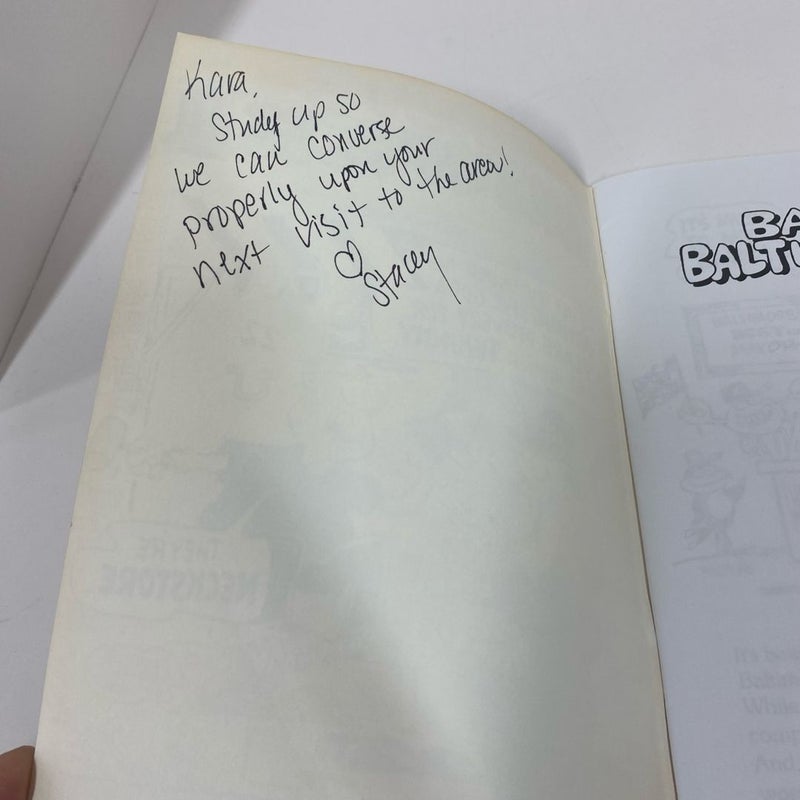 Kara,
Study up so
we can converse
properly upon your
next visit to the area!
♡
Stacey
BA
BALTI
THEY'RE
NECKSTORE
It's
While
comp
And